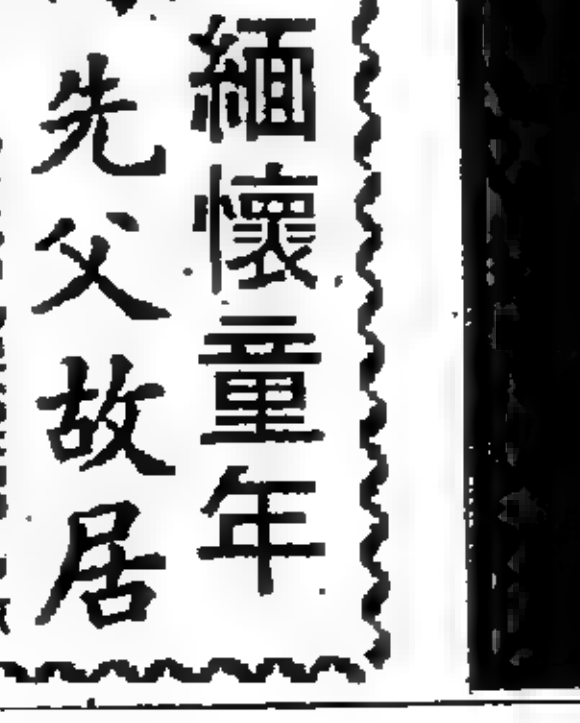 緬懷童年
先父故居